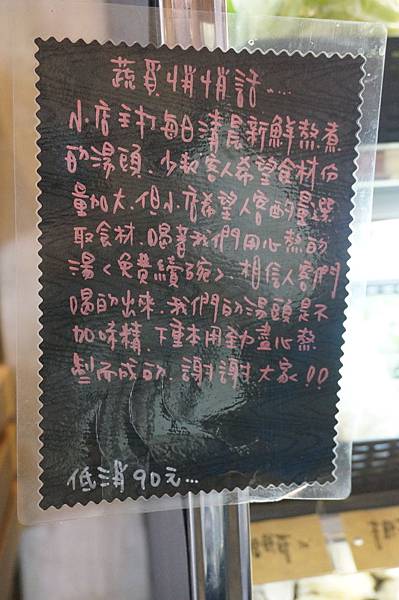 蔬買悄悄話....
小店主打每日清晨新鮮熬煮
的湯頭.少數客人希望食材份
量加大.但小店希望人客酌量選
取食材.喝著我們用心熬的
湯<免費續碗>.相信人客們
喝的出來.我們的湯頭是不
加味精.下重本用勁盡心熬
製而成的.謝謝大家!!
低消90元...